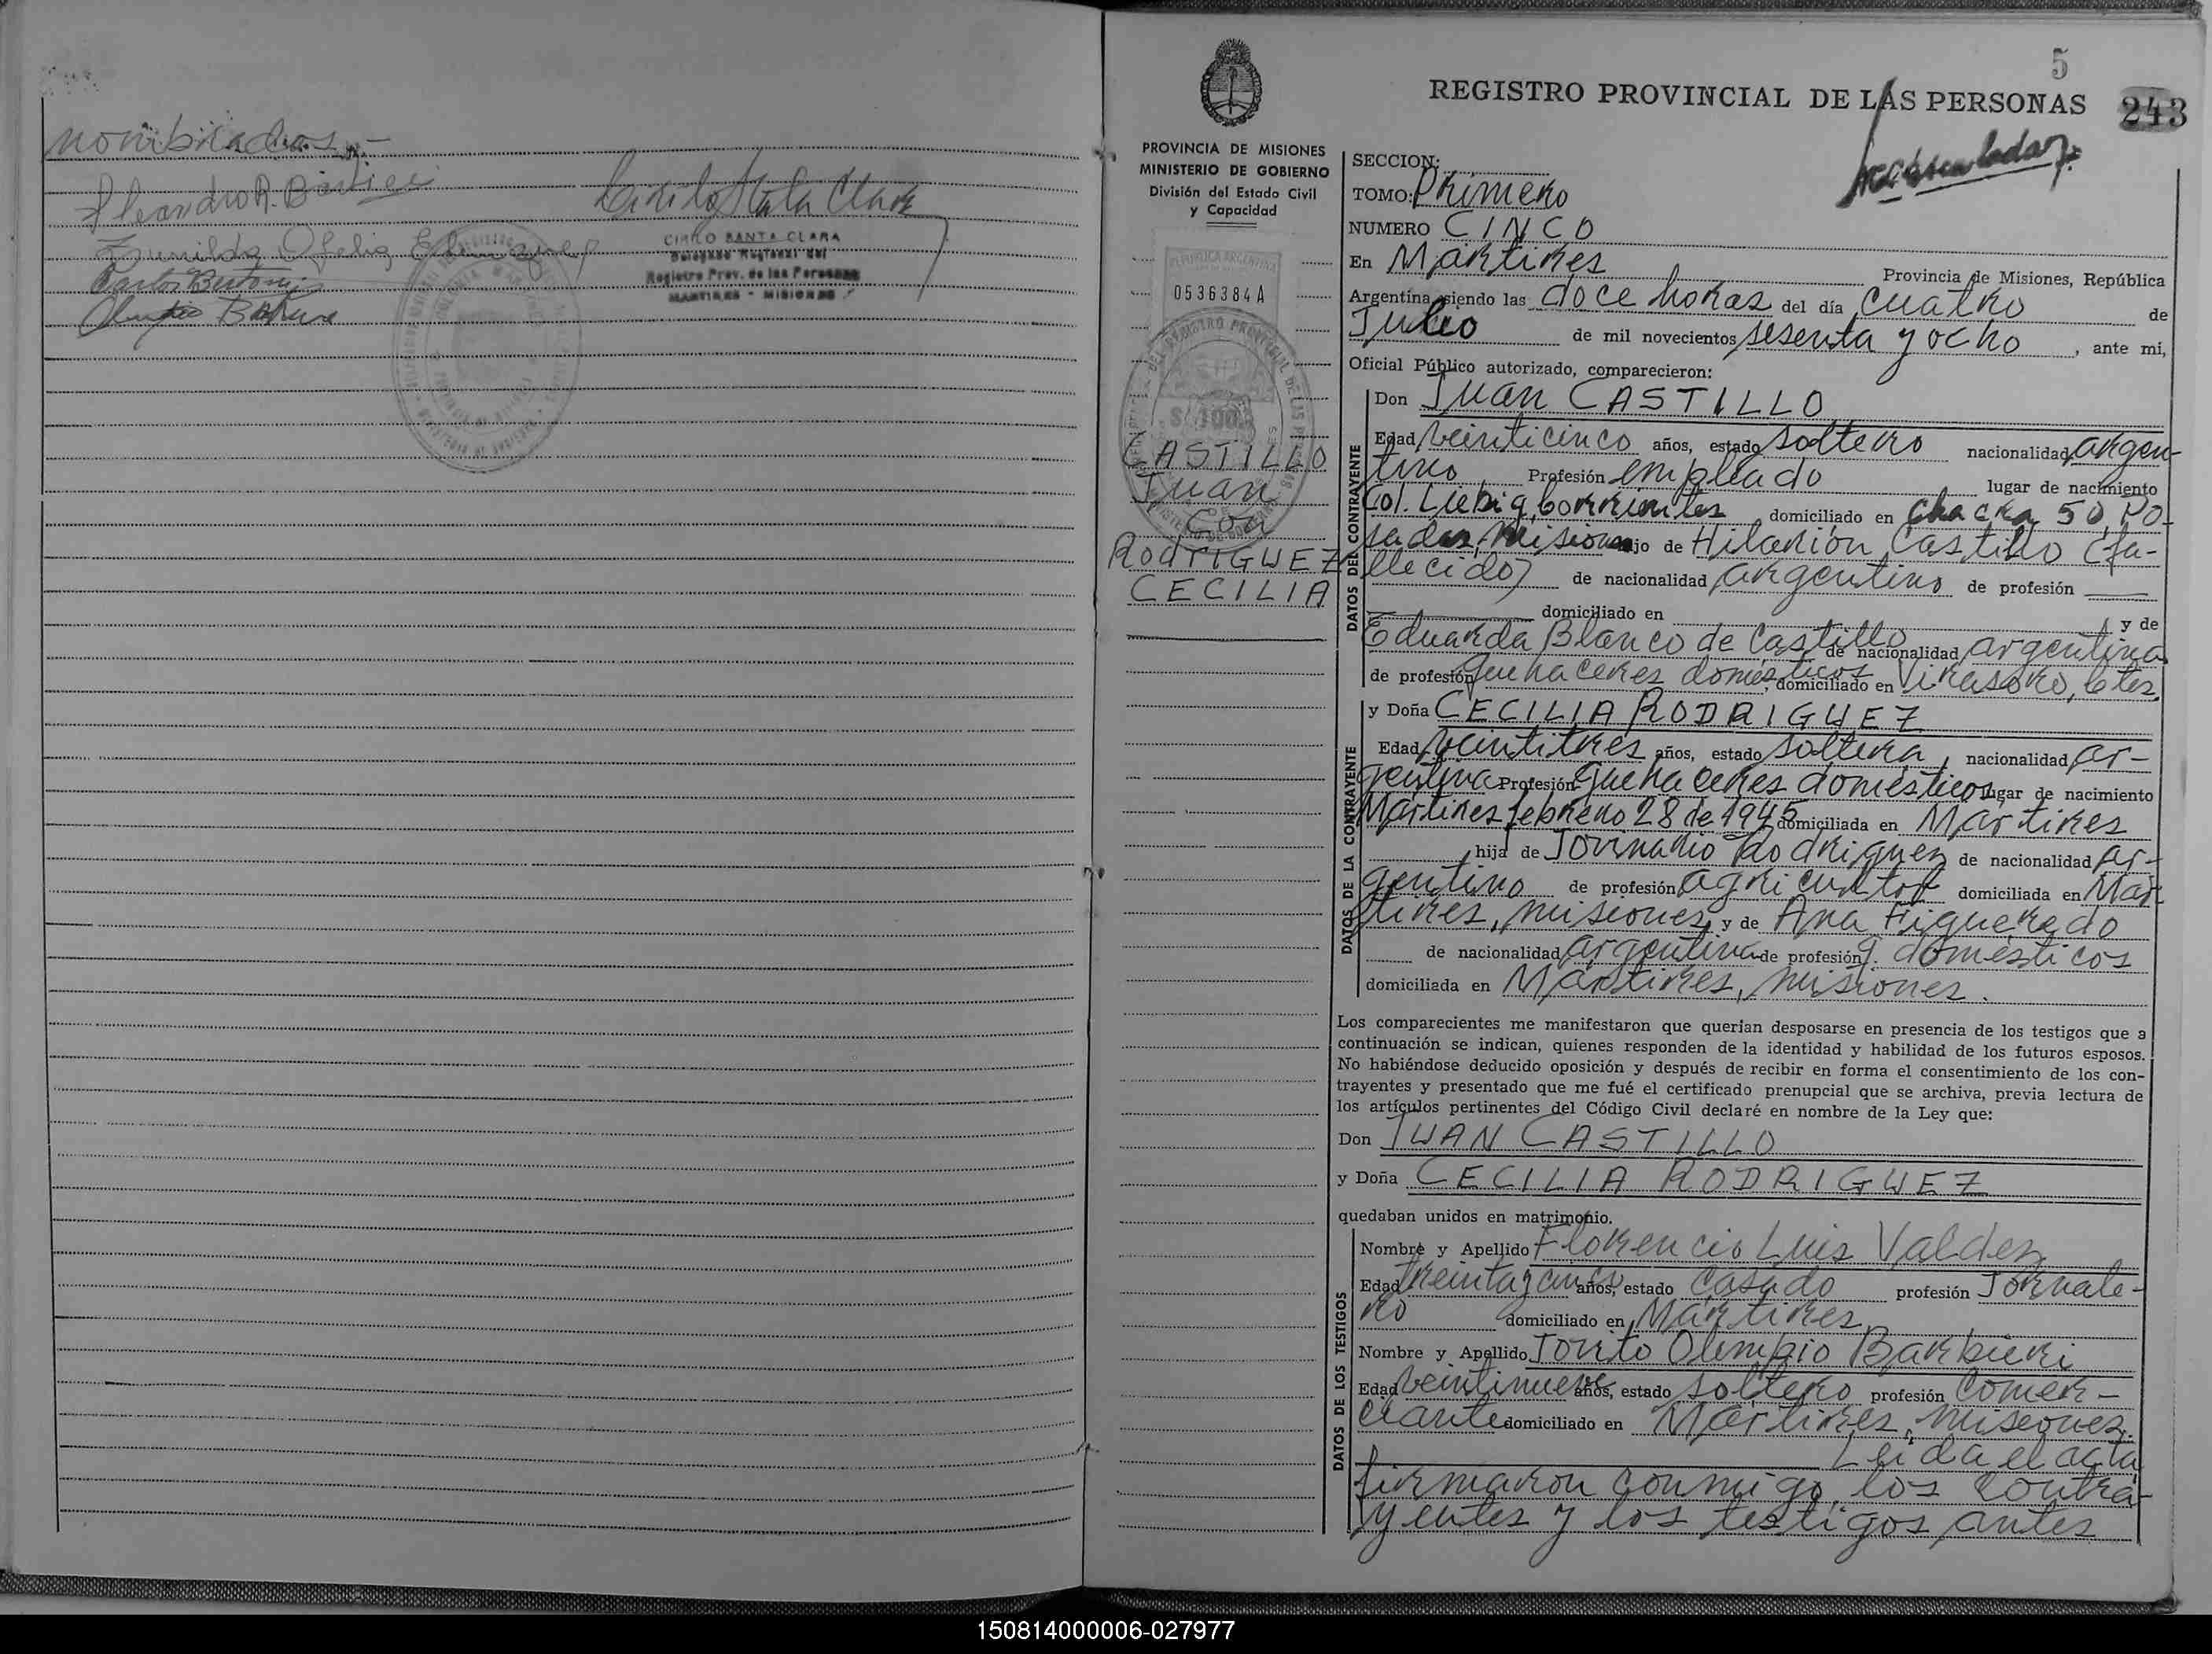 nombrados.-
Cirilo Santa Clara
CIRILO SANTA CLARA
Delegado Regional del
Registro Prov. de las Personas
MARTIRES - MISIONES
Carlos Bertoni
5
REGISTRO PROVINCIAL DE LAS PERSONAS 243
PROVINCIA DE MISIONES
MINISTERIO DE GOBIERNO
División del Estado Civil
y Capacidad
REPUBLICA ARGENTINA
0536384A
CASTILLO
Juan
Con
RODRIGUEZ
CECILIA
SECCION:
TOMO: Primero
NUMERO CINCO
En Mártires Provincia de Misiones, República
Argentina, siendo las doce horas del día cuatro de
Julio de mil novecientos sesenta y ocho, ante mi,
Oficial Público autorizado, comparecieron:
DATOS DEL CONTRAYENTE
Don Juan CASTILLO
Edad veinticinco años, estado soltero nacionalidad argen-
tino Profesión empleado lugar de nacimiento
Col. Liebig, Corrientes domiciliado en Chacra 50, Po-
sadas, Misiones hijo de Hilarión Castillo (fa-
llecido) de nacionalidad argentino de profesión
domiciliado en y de
Eduarda Blanco de Castillo de nacionalidad argentina
de profesión quehaceres domésticos, domiciliado en Virasoro, Ctes.
DATOS DE LA CONTRAYENTE
y Doña CECILIA RODRIGUEZ
Edad veintitres años, estado soltera, nacionalidad ar-
gentina Profesión quehaceres domésticos lugar de nacimiento
Mártires febrero 28 de 1945 domiciliada en Mártires
hija de Jovinario Rodriguez de nacionalidad ar-
gentino de profesión agricultor domiciliada en Már-
tires, Misiones, y de Ana Figueredo
de nacionalidad argentina de profesión q. domésticos
domiciliada en Mártires, Misiones.
Los comparecientes me manifestaron que querían desposarse en presencia de los testigos que a
continuación se indican, quienes responden de la identidad y habilidad de los futuros esposos.
No habiéndose deducido oposición y después de recibir en forma el consentimiento de los con-
trayentes y presentado que me fué el certificado prenupcial que se archiva, previa lectura de
los artículos pertinentes del Código Civil declaré en nombre de la Ley que:
Don JUAN CASTILLO
y Doña CECILIA RODRIGUEZ
quedaban unidos en matrimonio.
DATOS DE LOS TESTIGOS
Nombre y Apellido Florencio Luis Valdez
Edad años, estado casado profesión Jornale-
ro domiciliado en Mártires
Nombre y Apellido Jovito Olimpio Barbieri
Edad veintinueve años, estado soltero profesión comer-
ciante domiciliado en Mártires, Misiones.
Leida el acta
firmaron conmigo, los contra-
yentes y los testigos antes
150814000006-027977